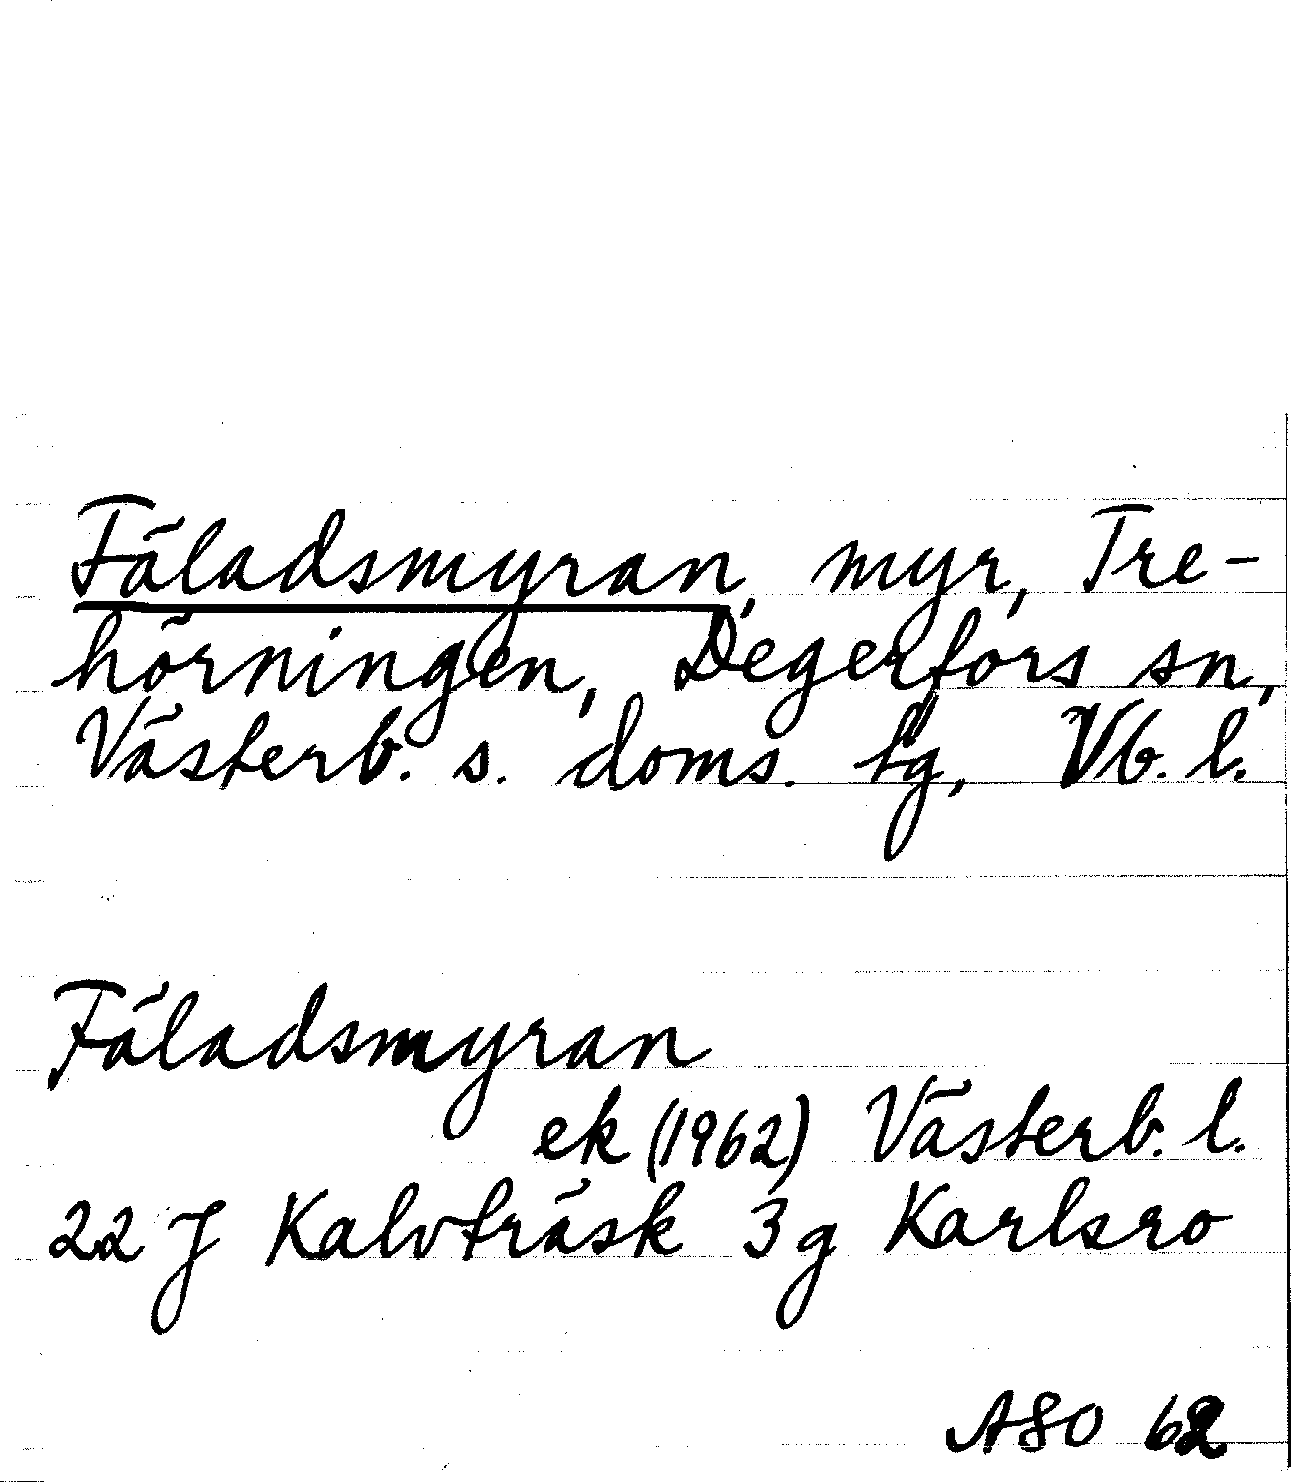 Fäladsmyran, myr, Tre-
hörningen, Degerfors sn,
Västerb. s. doms. tg, Vb. l.
Fäladsmyran
ek (1962) Västerb. l.
22 J Kalvträsk 3g Karlsro
ASO 62